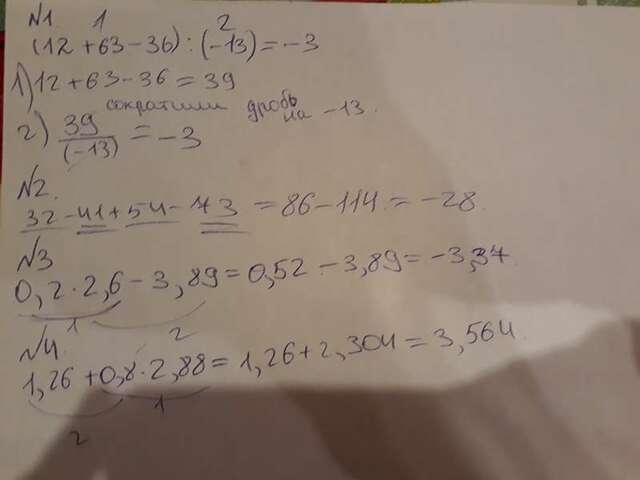 №1. 1 2
(12 + 63 - 36) : (-13) = -3
1) 12 + 63 - 36 = 39
сократили дробь на -13.
2) 39/(-13) = -3
№2.
32 - 41 + 54 - 73 = 86 - 114 = -28.
№3
0,2 · 2,6 - 3,89 = 0,52 - 3,89 = -3,37.
1 2
№4.
1,26 + 0,8 · 2,88 = 1,26 + 2,304 = 3,564.
1
2